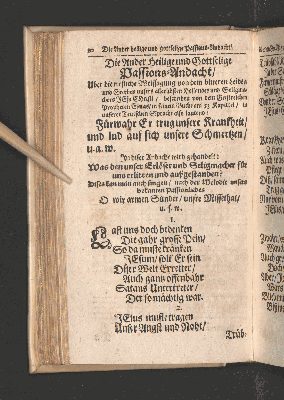 90 Die Ander heilige und gottselige Passions-Andacht/
Die Ander Heilige und Gottselige
Passions-Andacht/
Uber die tröstliche Weissagung von dem bitteren Leiden
und Sterben unsers allerliebsten Heilandes und Seligma-
chers JEsu Christi/ besonders von dem
Propheten Esaias in seinem Buche am 53 Kapittel/ in
unserer Teutschen Sprache also lautend:
Fürwahr Er trug unsere Krankheit/
und lud auf sich unsere Schmertzen/
u. a. w.
In dieser Andacht wird gehandelt:
Was der unser Erlöser und Seligmacher für
uns erlitten und ausgestanden?
Dieses kan man auch singen/ nach der Melodie unsers
bekanten Passionliedes
O wir armen Sünder/ unsre Missethat/
u. s. w.
1.
Last uns doch bedenken
Die gahr grosse Pein/
So da muste kränken
JEsum/ sols Er sein
Dieser Welt Erretter/
Auch gantz offenbahr
Satans Untertreter/
Der so mächtig war.
2.
JEsus muste tragen
Unser Angst und Noht/
Trüb-